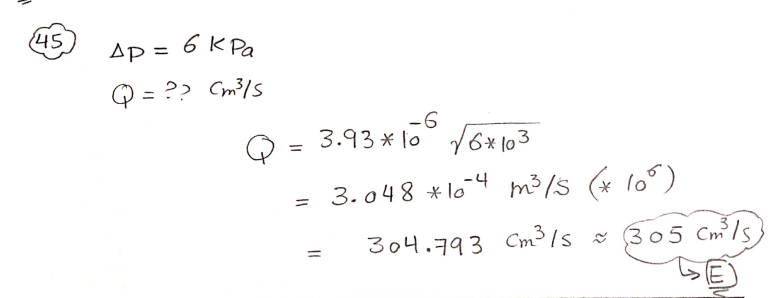 45 ΔP = 6 KPa
Q = ?? Cm³/S
Q = 3.93 * 10⁻⁶ √6*10³
= 3.048 * 10⁻⁴ m³/S (* 10⁶)
= 304.793 Cm³/S ≈ 305 Cm³/S
↳ E